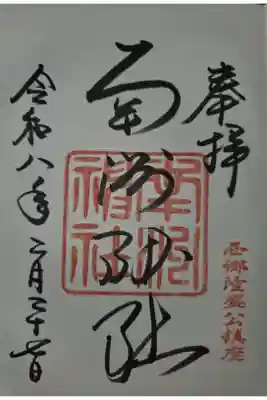 奉拝
西郷隆盛公鎮座
南洲神社
南洲神社
令和八年二月二十一日